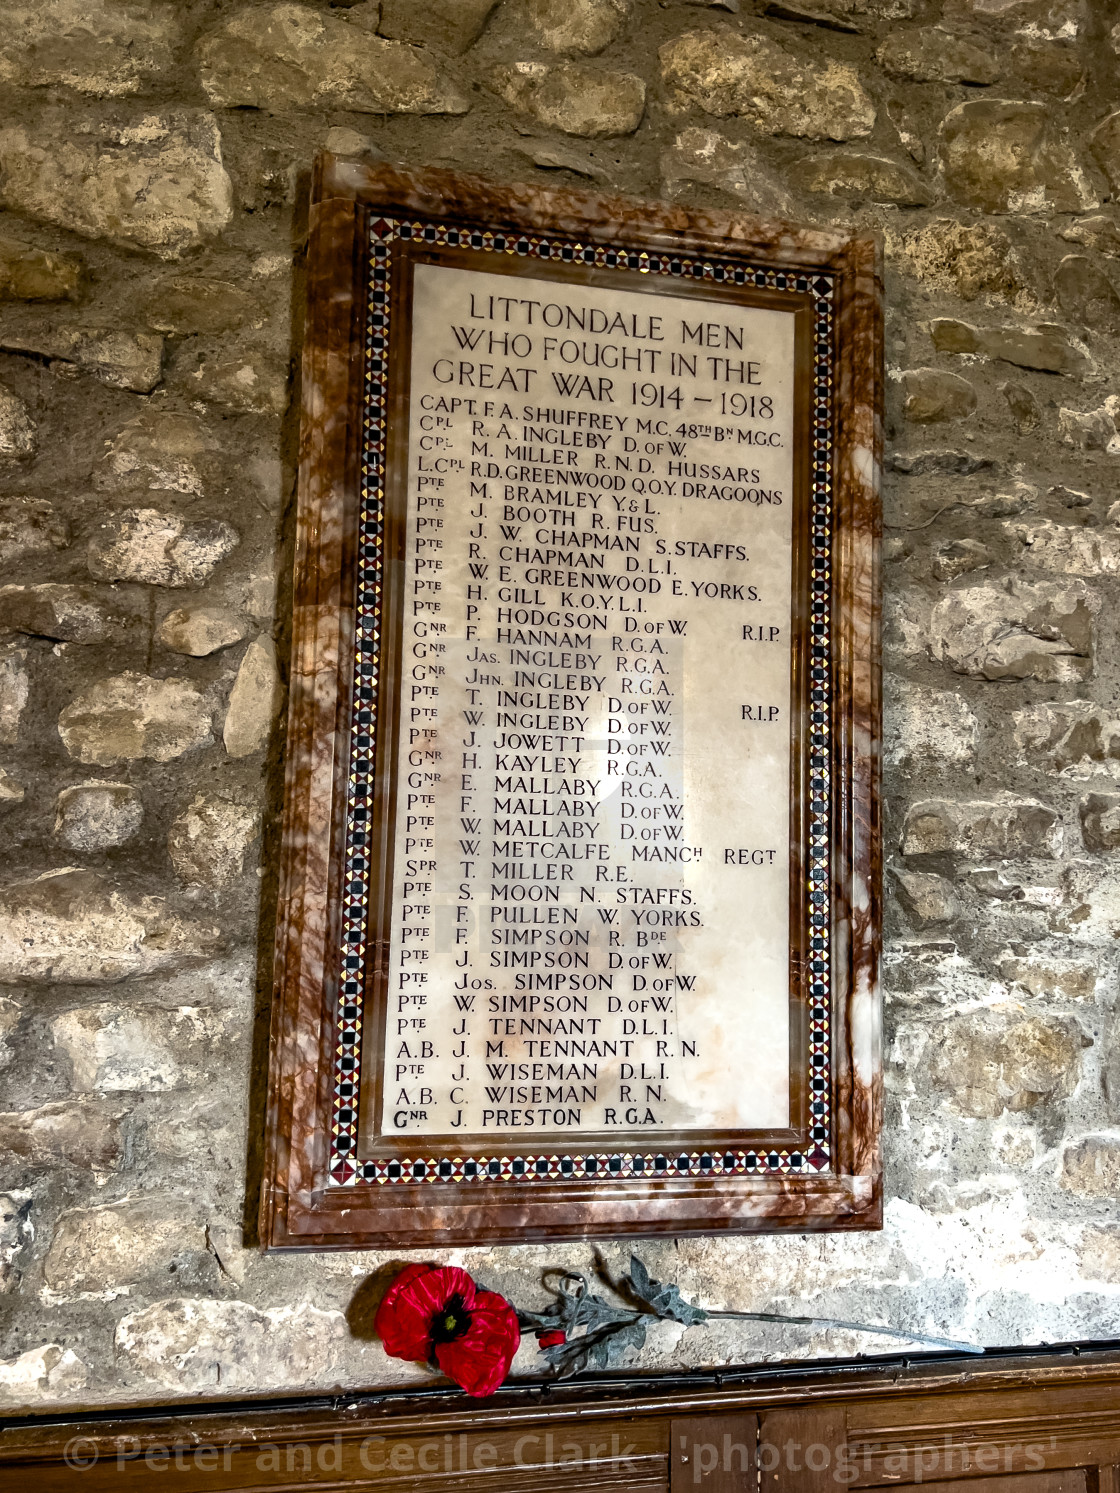 LITTONDALE MEN
WHO FOUGHT IN THE
GREAT WAR 1914 – 1918
CAPT. F. A. SHUFFREY M.C. 48TH BN M.G.C.
CPL R. A. INGLEBY D. OF W.
CPL M. MILLER R.N.D. HUSSARS
L.CPL R.D. GREENWOOD Q.O.Y. DRAGOONS
PTE M. BRAMLEY Y. & L.
PTE J. BOOTH R. FUS.
PTE J. W. CHAPMAN S. STAFFS.
PTE R. CHAPMAN D.L.I.
PTE W. E. GREENWOOD E. YORKS.
PTE H. GILL K.O.Y.L.I.
PTE P. HODGSON D. OF W. R.I.P.
GNR F. HANNAM R.G.A.
GNR JAS. INGLEBY R.G.A.
GNR JHN. INGLEBY R.G.A.
PTE T. INGLEBY D. OF W. R.I.P.
PTE W. INGLEBY D. OF W.
PTE J. JOWETT D. OF W.
GNR H. KAYLEY R.G.A.
GNR E. MALLABY R.G.A.
PTE F. MALLABY D. OF W.
PTE W. MALLABY D. OF W.
PTE W. METCALFE MANCH REGT
SPR T. MILLER R.E.
PTE S. MOON N. STAFFS.
PTE F. PULLEN W. YORKS.
PTE F. SIMPSON R. BDE
PTE J. SIMPSON D. OF W.
PTE JOS. SIMPSON D. OF W.
PTE W. SIMPSON D. OF W.
PTE J. TENNANT D.L.I.
A.B. J. M. TENNANT R. N.
PTE J. WISEMAN D.L.I.
A.B. C. WISEMAN R. N.
GNR J. PRESTON R.G.A.
© Peter and Cecile Clark - 'photographers'